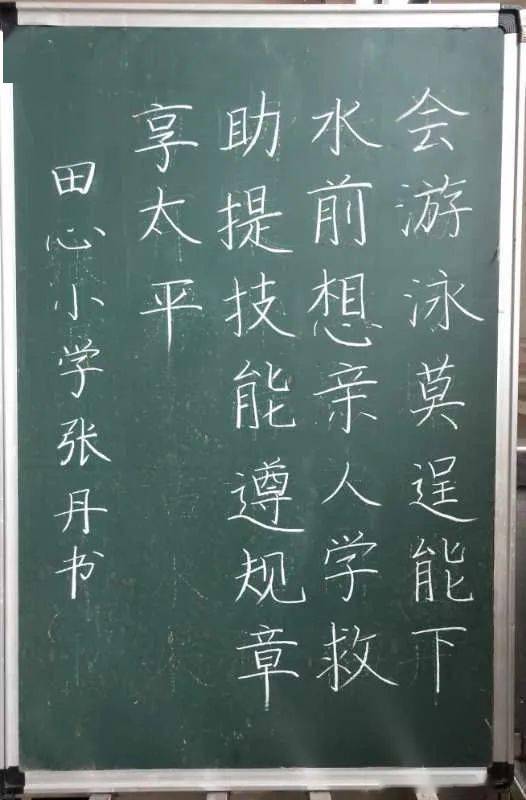 会游泳莫逞能下
水前想亲人学救
助提技能遵规章
享太平
田心小学张丹书